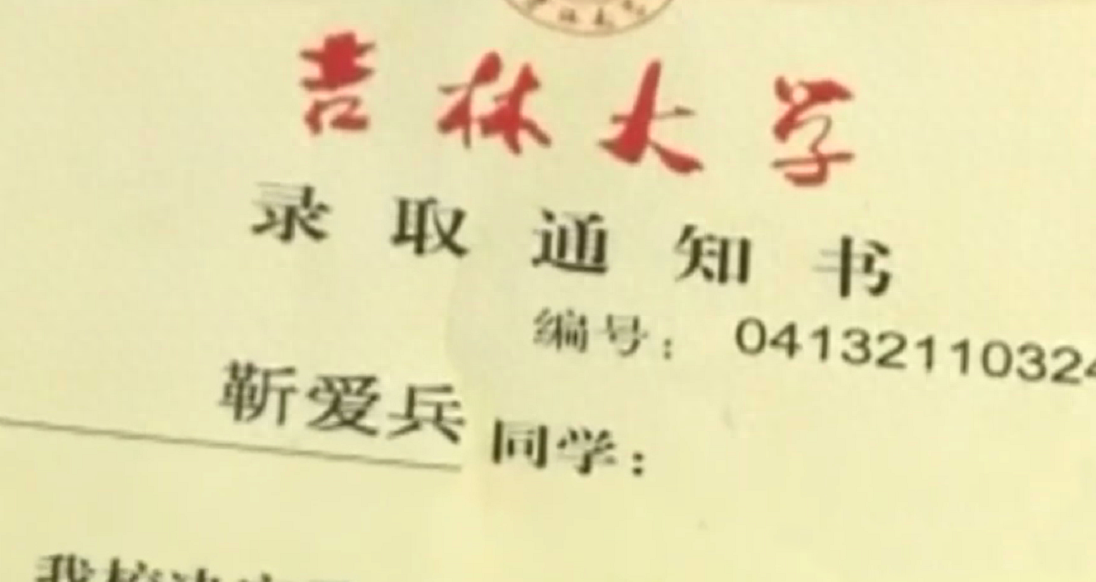 吉林大学
录取通知书
编号：04132110324
靳爱兵同学：
我校决定